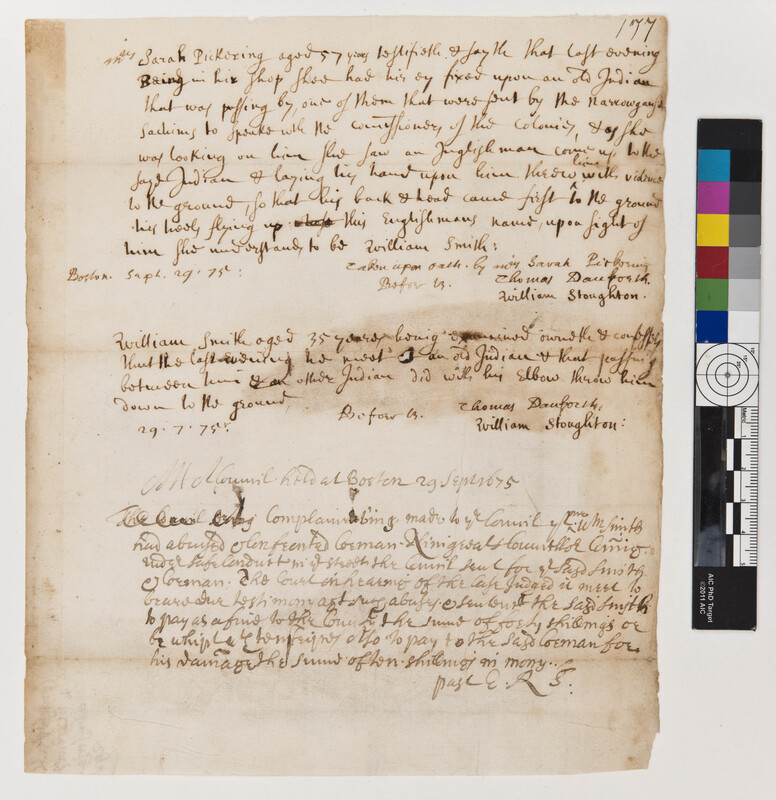 177
mrs Sarah Pickering aged 57 years testifieth & sayth that last evening
Being in hir shop shee had his ey fixed upon an old Indian
that was passing by, one of them that were sent by the Narrowganset
Sachims to speake with the comissioners of the Colonies, & as she
was looking on him she saw an Inglishman come up to the
sayd Indian & laying his hand upon him threw him with violence
to the ground, so that his back & head came first to the ground
his heels flying up this Englishmans name, upon sight of
him she understands to be William Smith:
Taken upon oath. by mrs Sarah Pickering
Boston. Sept. 29. 75:
Before Us. Thomas Danforth.
William Stoughton.
William Smith aged 35 yeares being examined owneth & confesseth
that the last evening he meet an old Indian & that passing
between him & an other Indian did with his Elbow throw him
down to the ground
Before Us. Thomas Danforth.
29. 7. 75:
William Stoughton:
At A Council held at Boston 29 Sept 1675
Complaint being made to ye Council yt Wm Smith
had abused Corman. Ninigrets Councellor
under safe conduct in ye street the Council sent for ye sayd Smith
& Corman. The Court in hearing of the Case Judged it meet to
beare due testimony agt such abuses & sentenc the sayd Smith
to pay as a fine to the the sume of forty shillings or
be whipt wth ten stripes also to pay to the sayd Corman for
his damage the sume of ten shillings in mony.
past E. R. S.